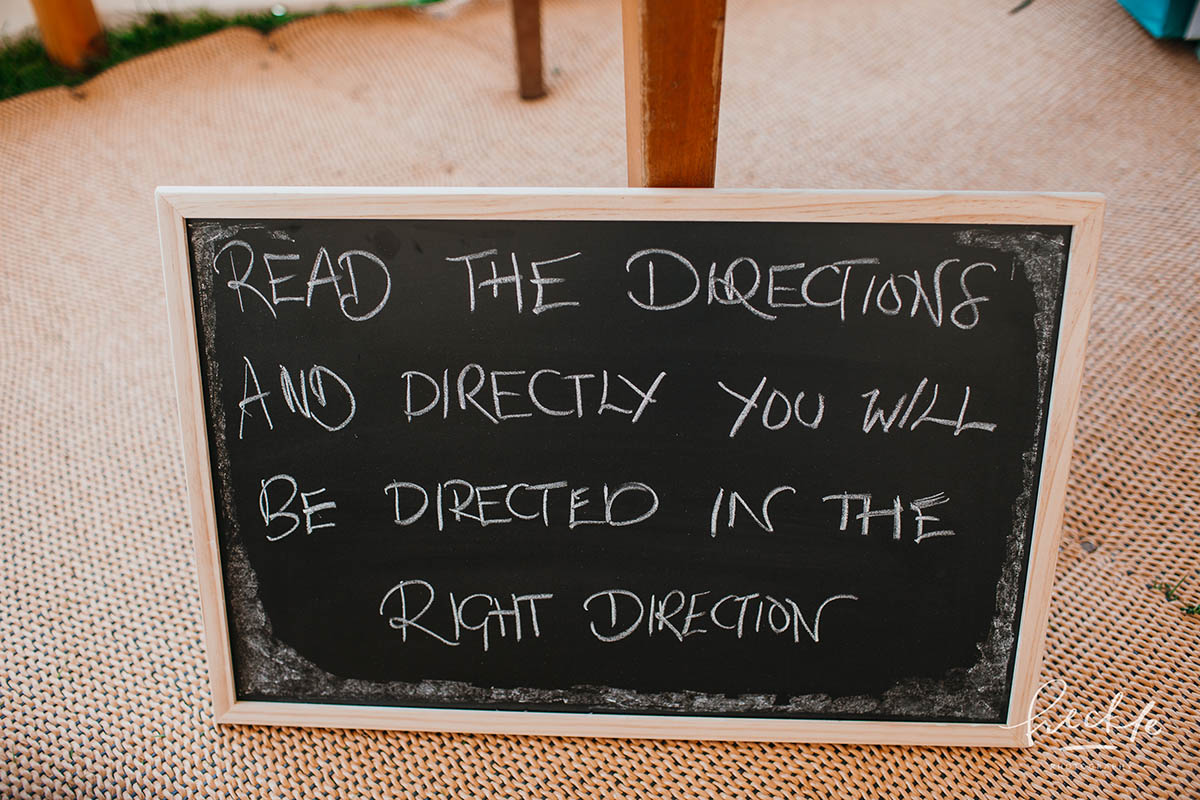 READ THE DIRECTIONS
AND DIRECTLY YOU WILL
BE DIRECTED IN THE
RIGHT DIRECTION